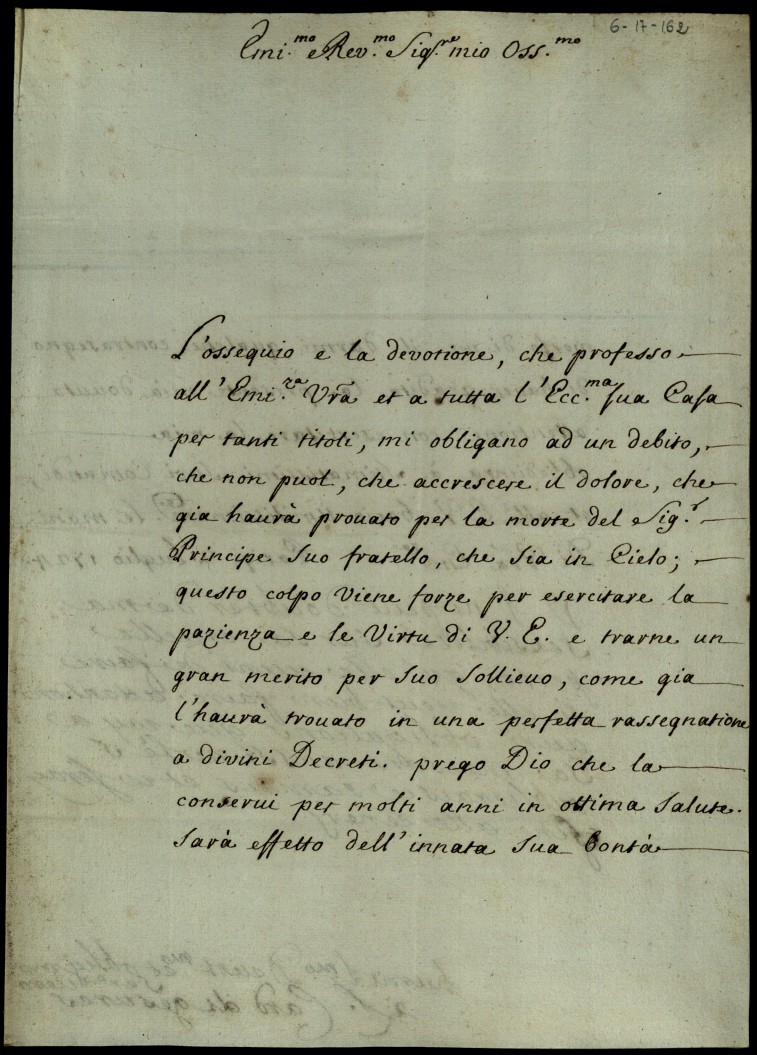 6-17-162
Emi.mo e Rev.mo Sig.re mio Oss.mo
L'ossequio e la devotione, che professo
all'Emi.za Vra et a tutta l'Ecc.ma sua Casa
per tanti titoli, mi obligano ad un debito,
che non puol, che accrescere il dolore, che
gia haurà prouato per la morte del Sig.r
Principe suo fratello, che sia in Cielo;
questo colpo viene forze per esercitare la
pazienza e le Virtu di V. E. e trarne un
gran merito per suo sollieuo, come gia
l'haurà trouato in una perfetta rassegnatione
a divini Decreti. prego Dio che la
conserui per molti anni in ottima salute.
sarà effetto dell'innata sua bontà